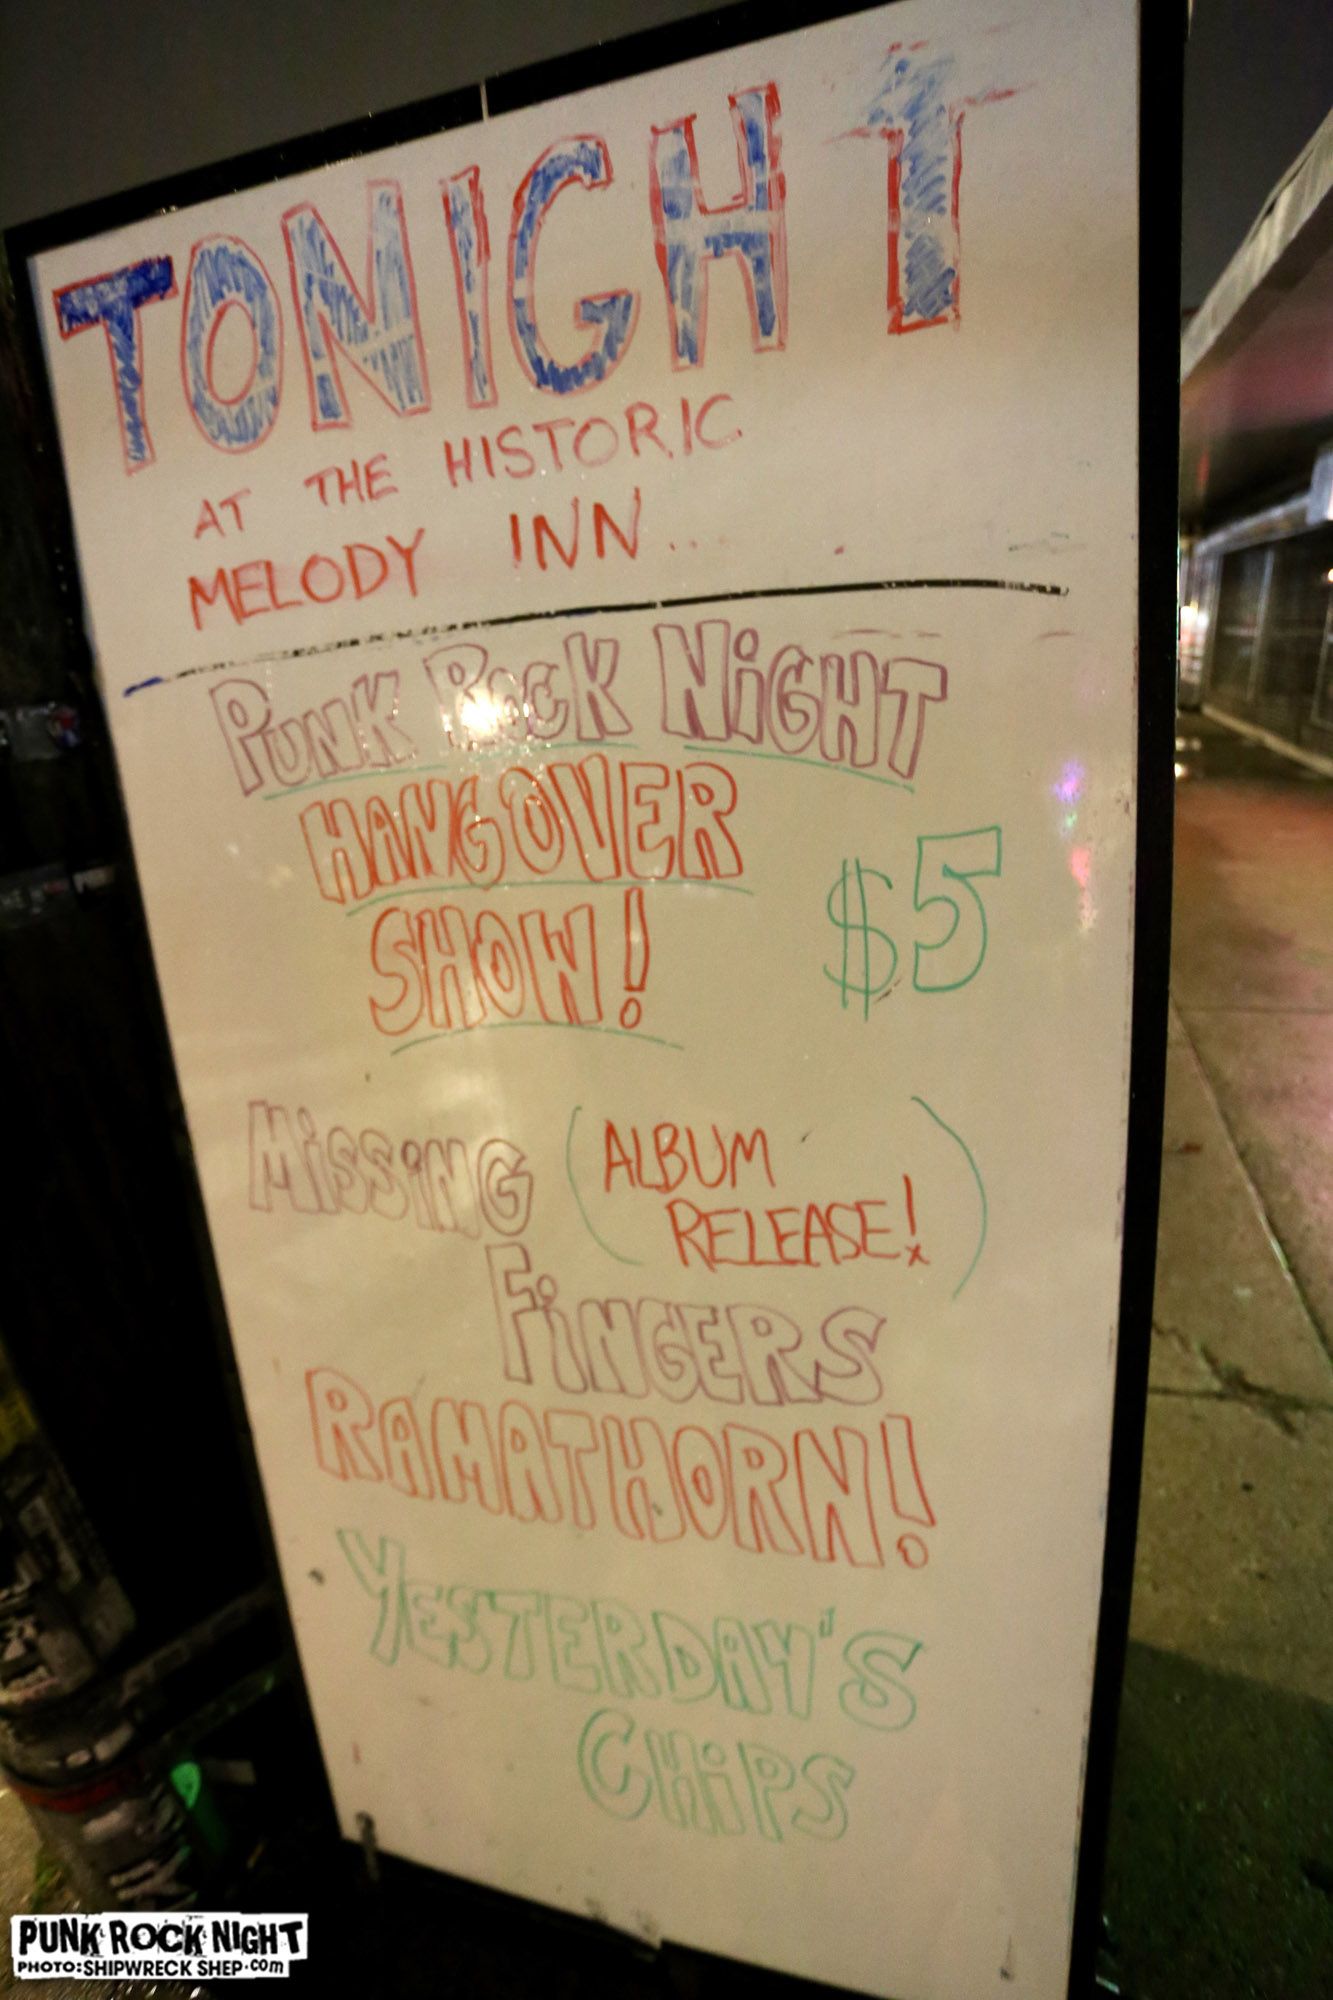 TONIGHT
AT THE HISTORIC
MELODY INN...
PUNK ROCK NiGHT
HANGOVER
SHOW!
$5
MiSSiNG
(ALBUM
RELEASE!)
FiNGERS
RAMATHORN!
YESTERDAY'S
CHiPS
PUNK ROCK NIGHT
PHOTO: SHIPWRECK SHEP.com